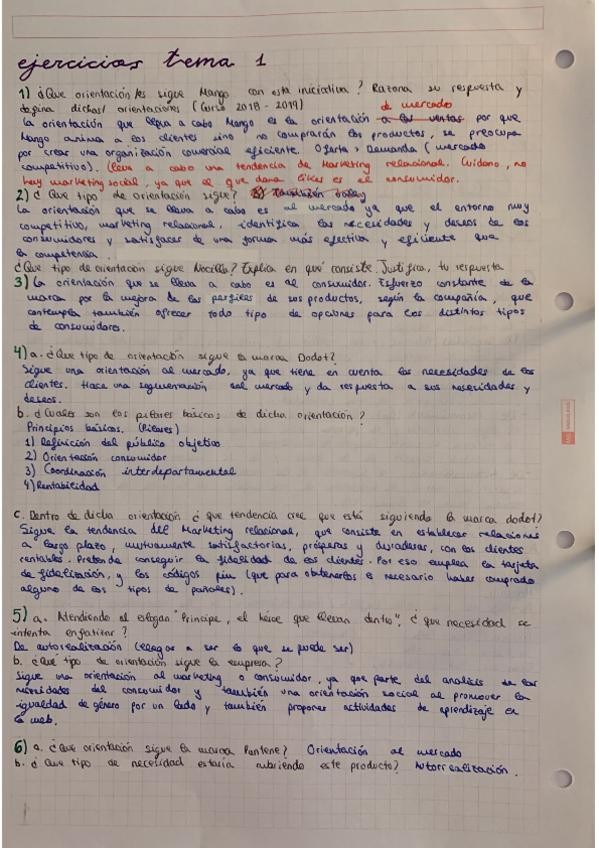 ejercicios tema 1
1) ¿Que orientación/es sigue Mango con esta iniciativa? Razona su respuesta y
defina dichas/ orientaciones (Curso 2018 - 2019) de mercado
La orientación que lleva a cabo Mango es la orientación a las ventas por que
Mango anima a los clientes sino no comprarán los productos, se preocupa
por crear una organización comercial eficiente. Oferta > Demanda (mercado
competitivo). (lleva a cabo una tendencia de Marketing relacional. Cuidano, no
hay marketing social, ya que el que dona likes es el consumidor.
2) ¿Que tipo de orientación sigue?
La orientación que se lleva a cabo es al mercado ya que el entorno muy
competitivo, marketing relacional, identifica las necesidades y deseos de los
consumidores y satisfacer de una forma más efectiva y eficiente que
la competencia.
¿Que tipo de orientación sigue Nocilla? Explica en qué consiste. Justifica, tu respuesta
3) La orientación que se lleva a cabo es al consumidor. Esfuerzo constante de la
marca por la mejora de los perfiles de sus productos, según la compañía, que
contempla también ofrecer todo tipo de opciones para los distintos tipos
de consumidores.
4) a. ¿Que tipo de orientación sigue la marca Dodot?
Sigue una orientación al mercado, ya que tiene en cuenta las necesidades de los
clientes. Hace una segmentación del mercado y da respuesta a sus necesidades y
deseos.
b. ¿Cuales son los pilares básicos de dicha orientación?
Principios básicos. (Pilares)
1) Definición del público objetivo
2) Orientación consumidor
3) Coordinación interdepartamental
4) Rentabilidad
c. Dentro de dicha orientación ¿que tendencia cree que está siguiendo la marca dodot?
Sigue la tendencia del Marketing relacional, que consiste en establecer relaciones
a largo plazo, mutuamente satisfactorias, prósperas y duraderas, con los clientes
rentables. Pretende conseguir la fidelidad de los clientes. Por eso emplea la tarjeta
de fidelización, y los códigos pin (que para obtenerlos es necesario haber comprado
alguno de los tipos de pañales).
5) a. Atendiendo al eslogan "Principe, el héroe que llevan dentro", ¿que necesidad se
intenta enfatizar?
De autorealización (llegar a ser lo que se puede ser)
b. ¿Qué tipo de orientación sigue la empresa?
Sigue una orientación al marketing o consumidor, ya que parte del analisis de las
necesidades del consumidor y también una orientación social al promover la
igualdad de género por un lado y también proponer actividades de aprendizaje en
la web.
6) a. ¿Que orientación sigue la marca Pantene? Orientación al mercado
b. ¿Que tipo de necesidad estaría cubriendo este producto? Autorrealización.